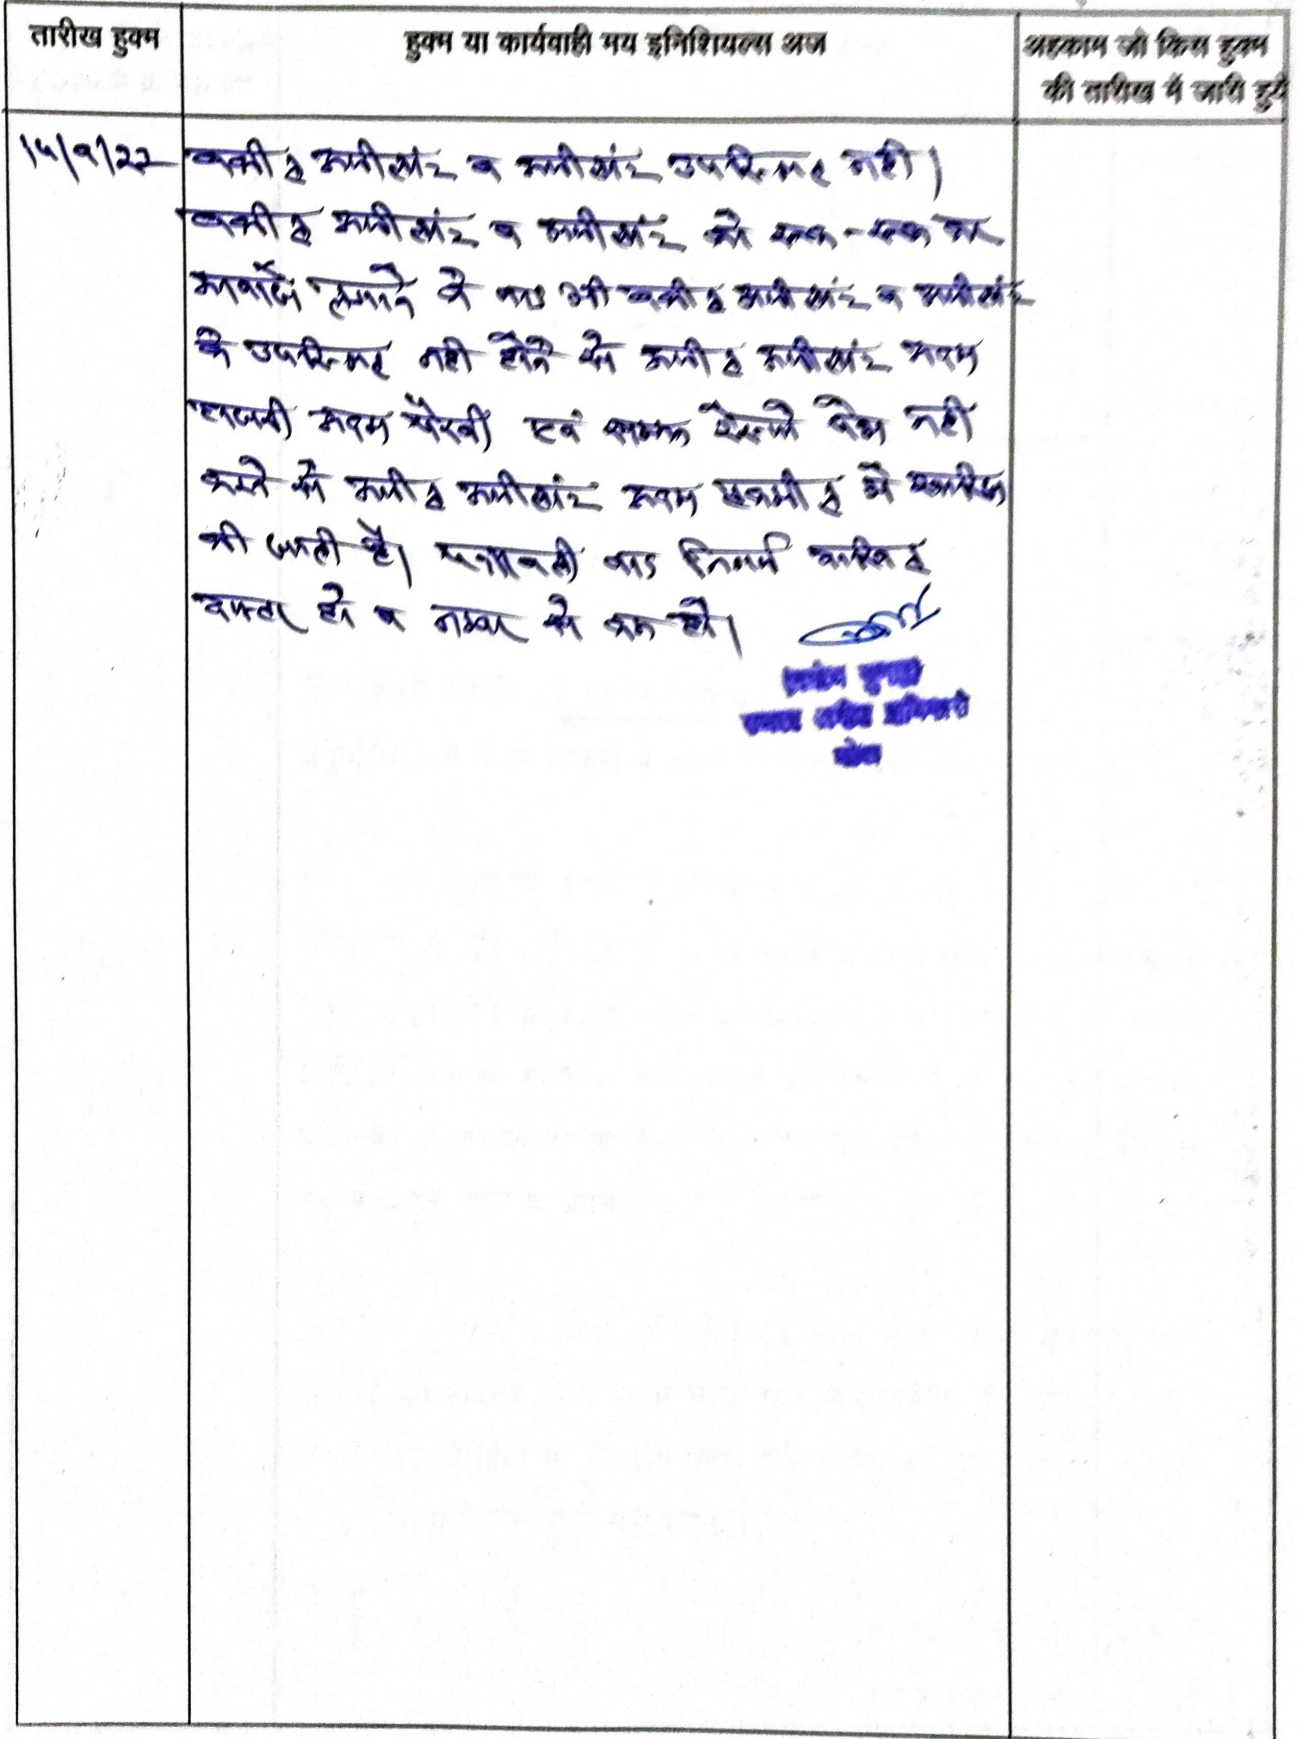 तारीख हुक्म
हुक्म या कार्यवाही मय इनिशियल्स अज
अहकाम जो किस हुक्म
की तारीख में जारी हुये
वकील अपीलांट व अपीलांट उपस्थित नहीं।
वकील अपीलांट व अपीलांट को एक-एक कर
आवाजें लगाने के बाद भी वकील अपीलांट व अपीलांट
के उपस्थित नहीं होने से अपील अपीलांट अदम
हाजरी अदम पैरवी एवं पेश नहीं
करने से अपील अपीलांट अदम तकमील में खारिज
की जाती है। पत्रावली बाद निर्णय दाखिल
दफ्तर हो व नम्बर से कम हो।
अपील अधिकारी